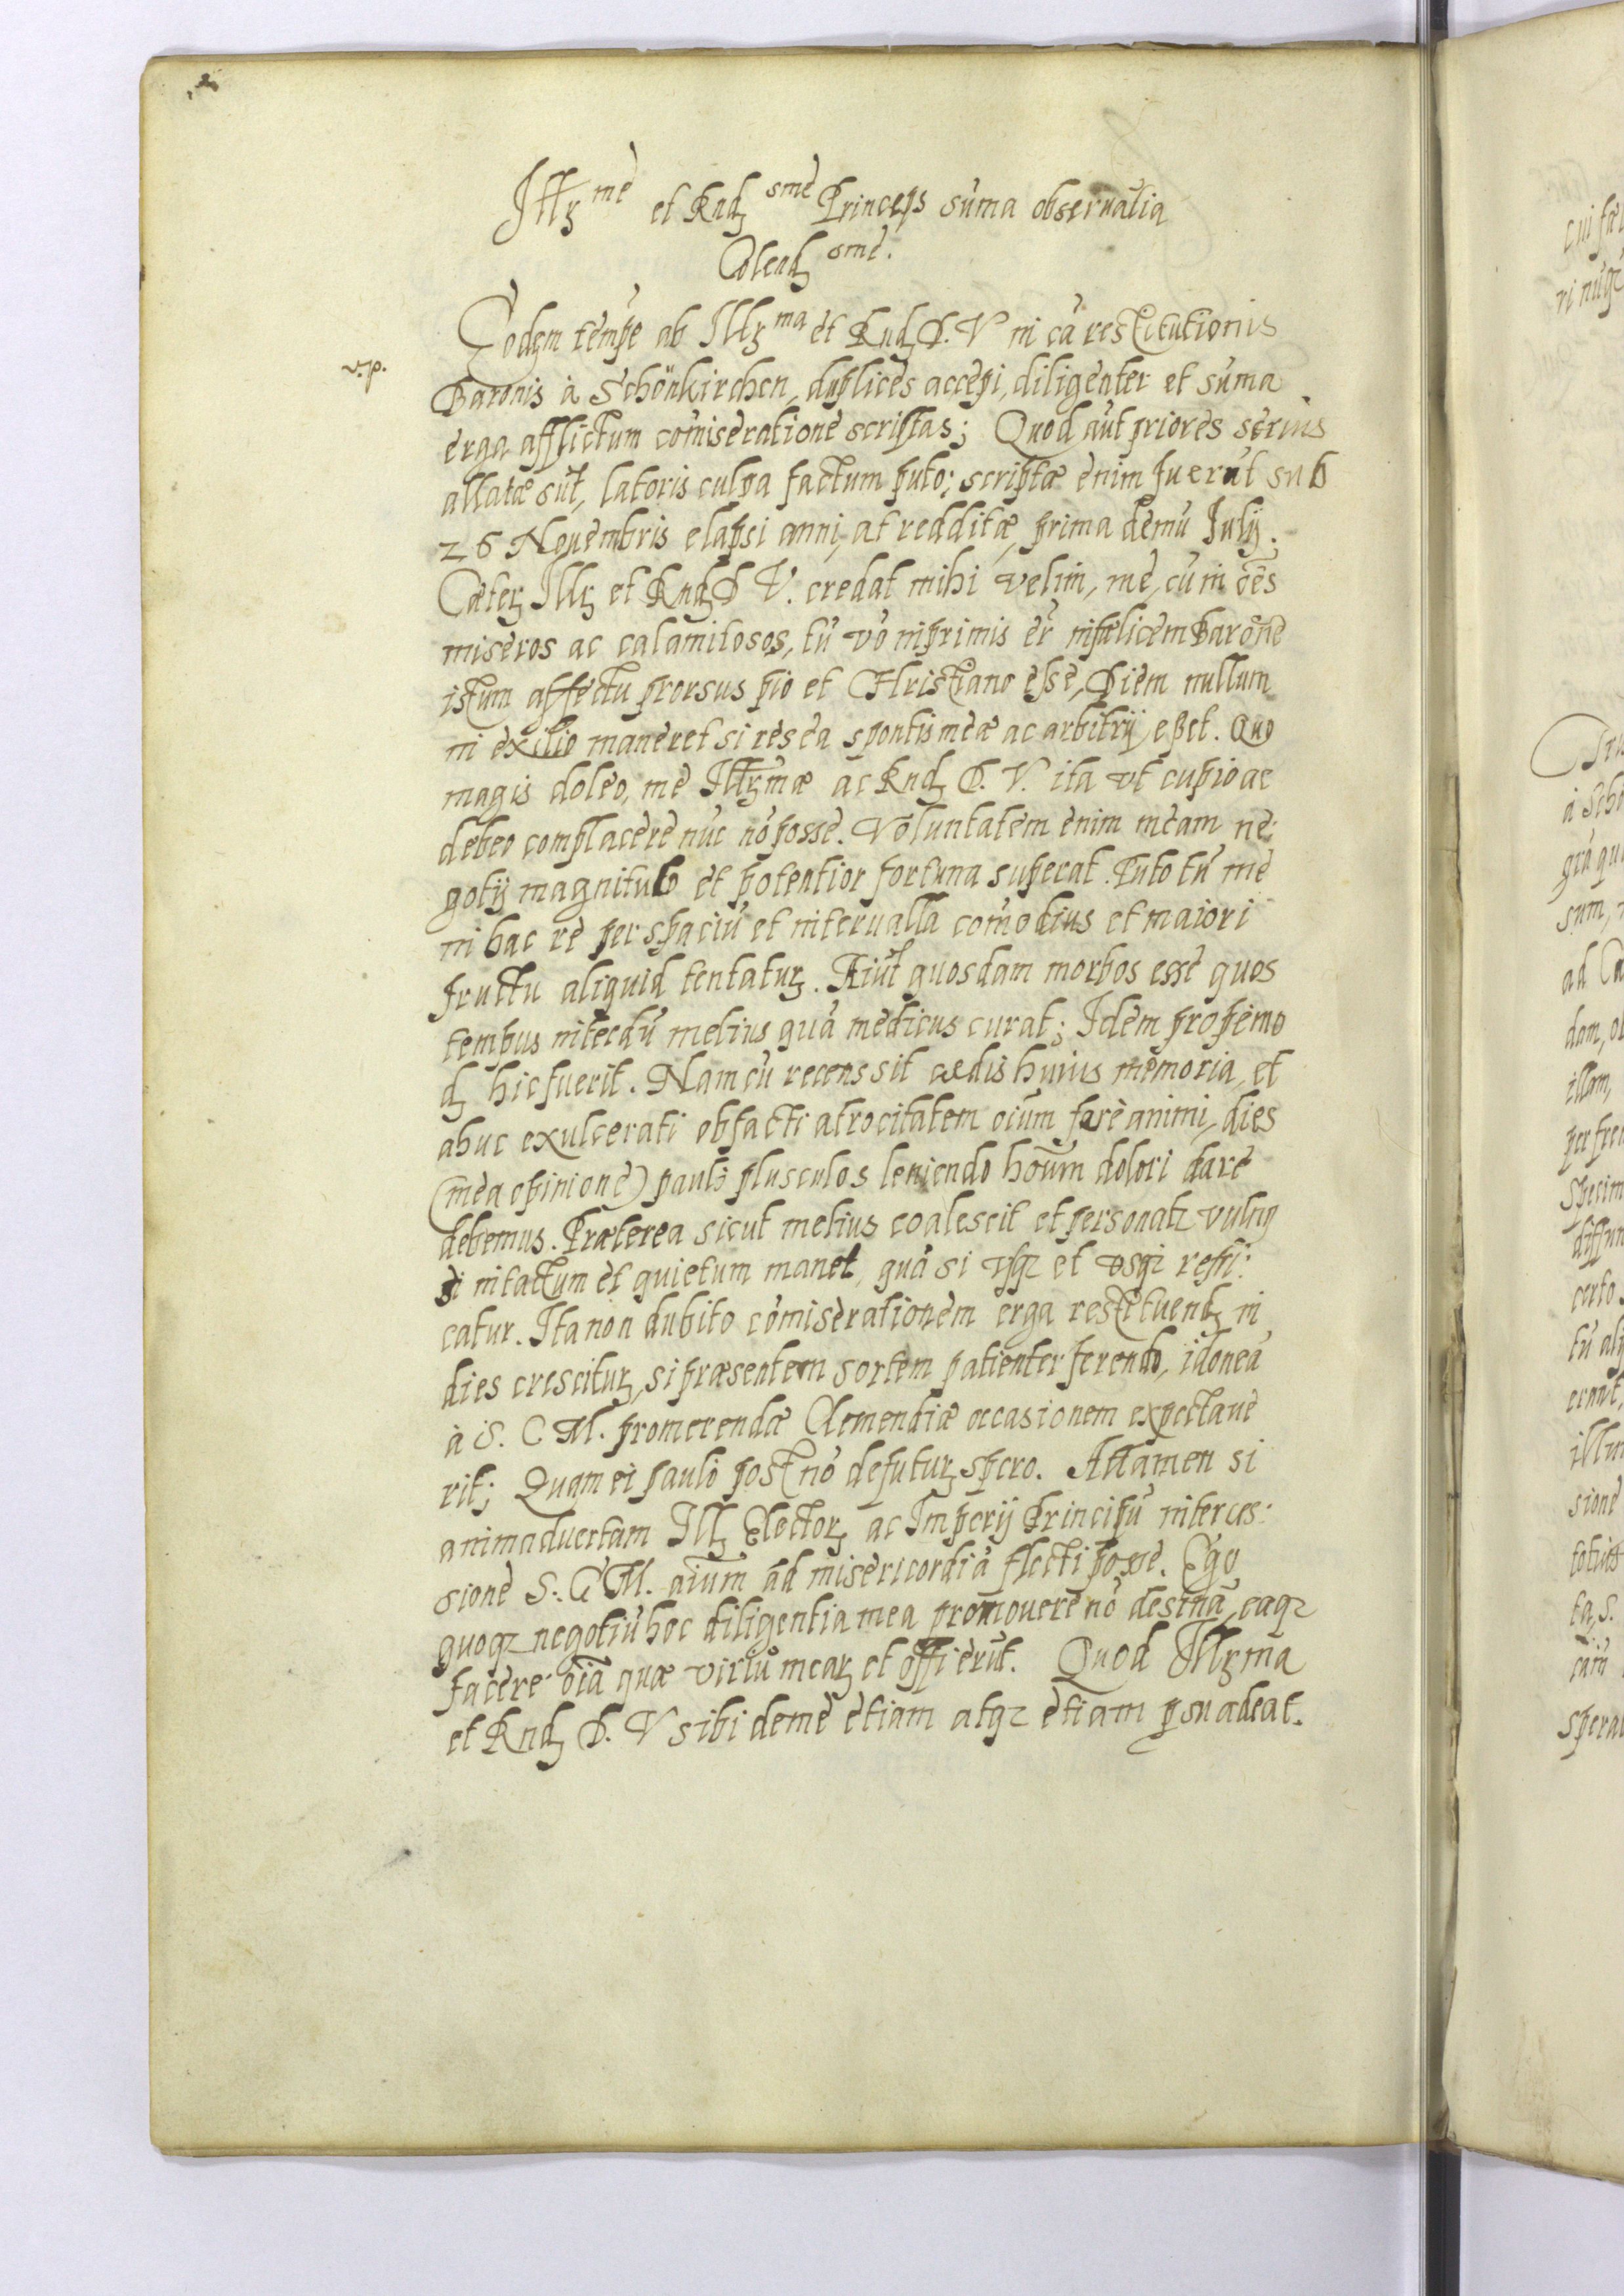 Illr me et Rnd sme Princeps sum̃a observãtia
Colend sme.
Eodem tẽmpe ab Illr ma et Rnd D. V in cã restitutionis
v. p.
Baronis à Schönkirchen, duplices accepi, diligenter et sum̃a
erga afflictum com̃iseratione scriptas; Quod aũt priores serius
allatæ sũt, latoris culpa factum puto; scriptæ enim fuerũt sub
26 Novembris elapsi anni, at redditæ, prima demũ Iulij.
Cæter Illr et Rnd D V. credat mihi velim, me, cũ in oẽs
miseros ac calamitosos, tũ vò inprimis er̃ infælicem Baronẽ
istum affectu prorsus pio et Christiano esse, Diem nullum
in exilio maneret si res ea spontis meæ ac arbitrij eßet. Quo
magis doleo, me Illrmæ ac Rnd D. V. ita vt cupio ac
debeo complacere nũc nõ posse. Voluntatem enim meam ne:
gotij magnitudo et potentior fortuna superat. Puto tñ me
in hac re per spaciũ et intervalla com̃odius et maiori
fructu aliquid tentatur. Aiũt quosdam morbos esse quos
tempus interdũ melius quã medicus curat; Idem propemo
d hic fuerit. Nam cũ recens sit cædis huius memoria, et
ahuc exulcerati ob facti atrocitatem oĩum ferè animi, dies
(mea opinione) paulò plusculos leniendo hoĩum dolori dare
debemus. Præterea sicut melius coalescit et personatr vulnꝰ
si intactum et quietum manet, quã si vsqꝫ et vsqꝫ refri:
catur. Ita non dubito com̃iserationem erga restituend in
dies crescitur, si præsentem sortem patienter ferendo, idoneã
à S. C M. promerendæ Clementiæ occasionem expectave
rit; Quam ei paulò post nõ defutur spero. Attamen si
animadvertam Ill Elector ac Imperij Principũ interces:
sione S. C M. aĩum ad misericordiã flecti posse. Ego
quoqꝫ negotiũ hoc diligentia mea promovere nõ desinã, eaqꝫ
facere oĩa quæ virtũ mear et offi erũt. Quod Illrma
et Rnd D. V sibi de me etiam atqꝫ etiam ꝑsuadeat.